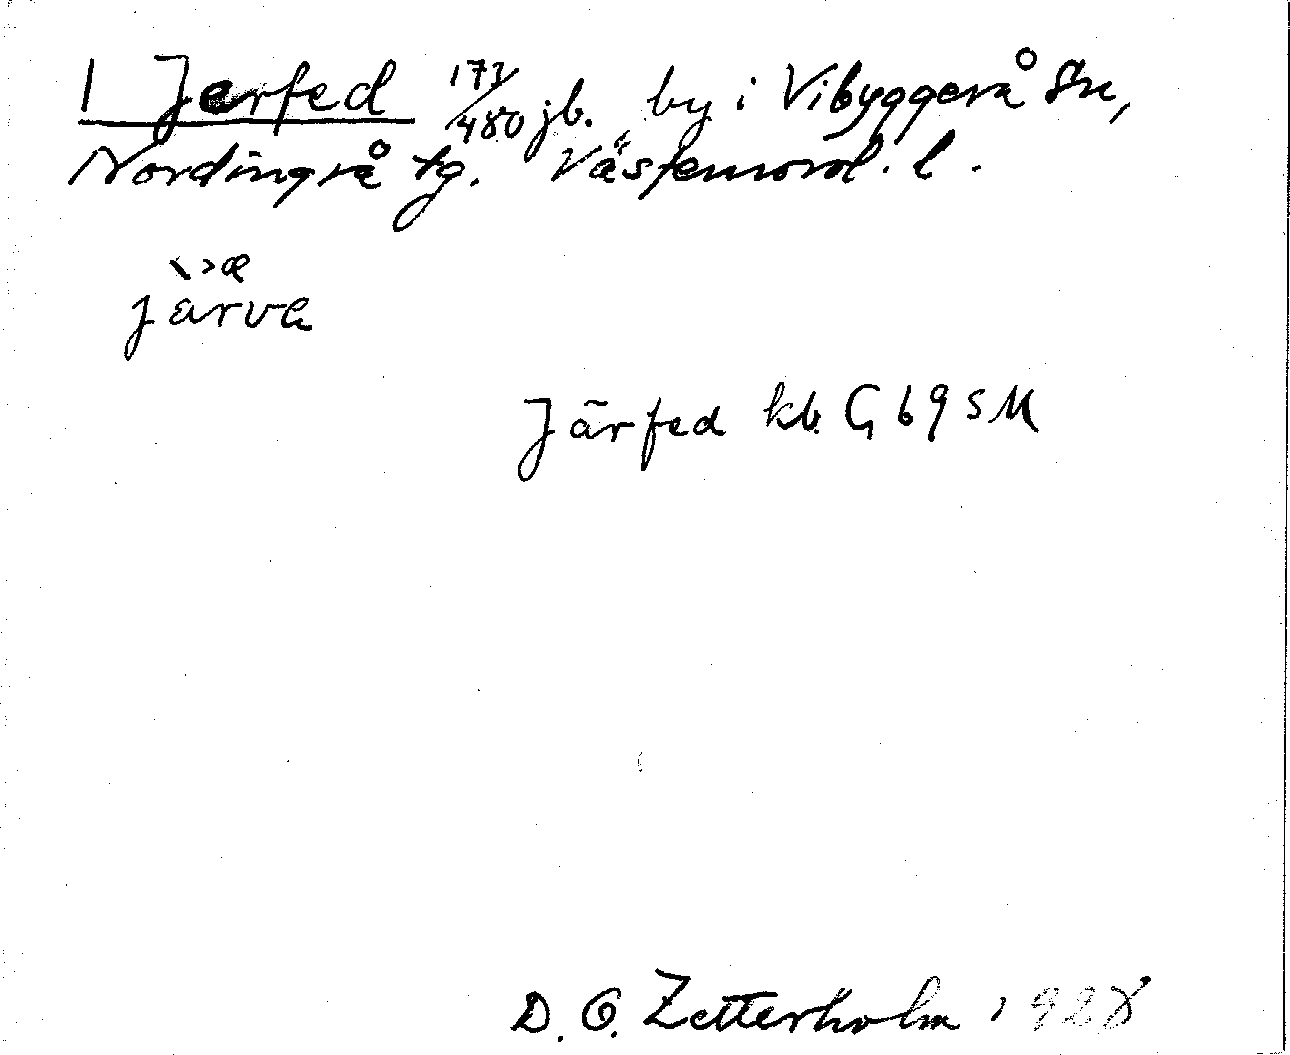 1 Jerfed 177/480 jb. by i Vibyggerå sn,
Nordingrå tg. Västernorrl. l.
järva
Järfed kb. G 69 SM
D. O. Zetterholm 1928